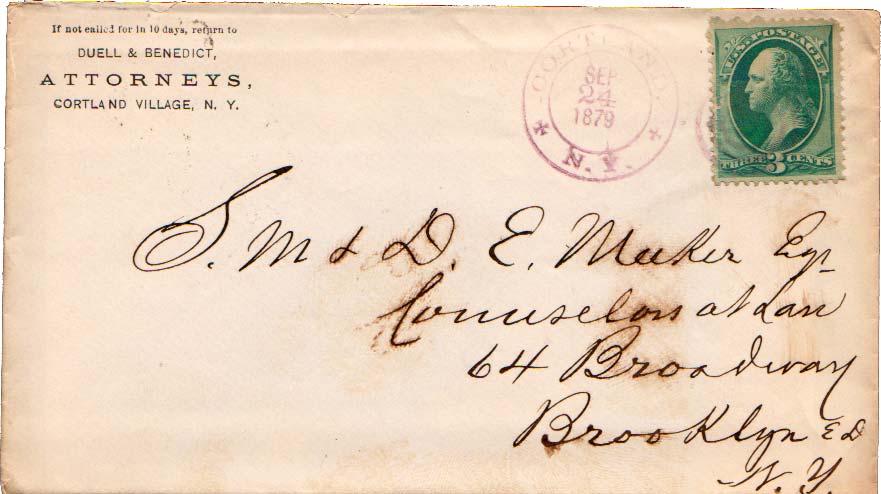 If not called for in 10 days, return to
DUELL & BENEDICT,
ATTORNEYS,
CORTLAND VILLAGE, N. Y.
CORTLAND.
SEP
24
1879
N. Y.
U.S. POSTAGE
THREE 3 CENTS
S. M & D. E. Meeker Esqs
Counselors at Law
64 Broadway
Brooklyn E D
N. Y.